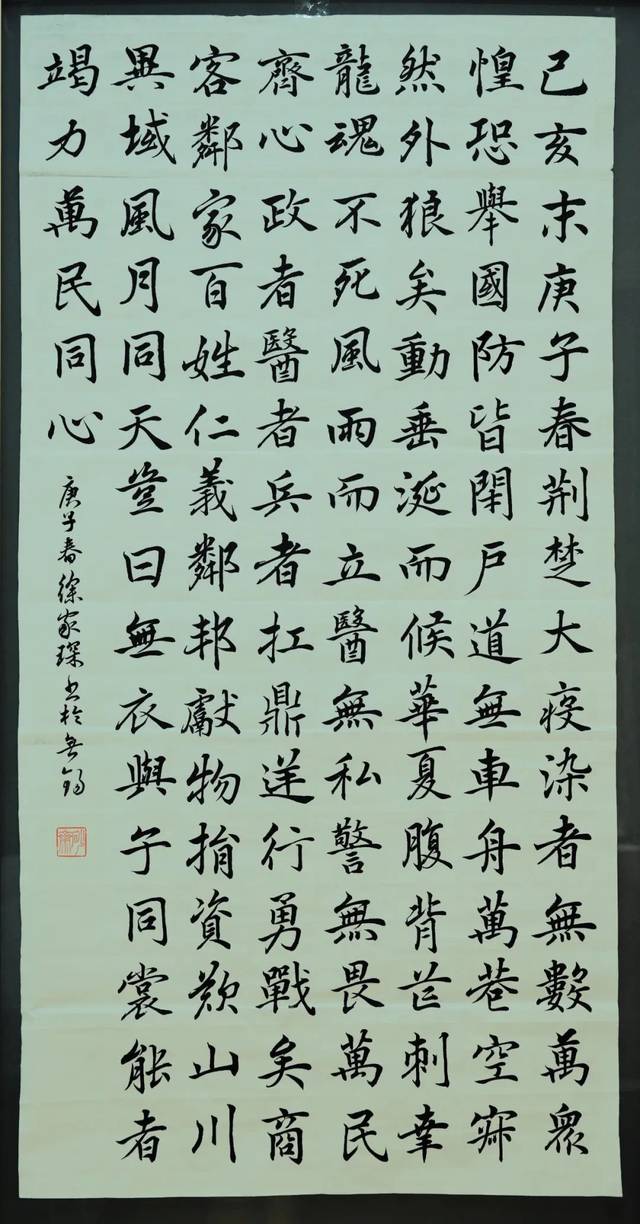 己亥末庚子春荊楚大疫染者無數萬眾
惶恐舉國防皆閉戶道無車舟萬巷空寂
然外狼矣動垂涎而候華夏腹背芒刺幸
龍魂不死風雨而立醫無私警無畏萬民
齊心政者醫者兵者扛鼎逆行勇戰矣商
客鄰家百姓仁義鄰邦獻物捐資歎山川
異域風月同天豈曰無衣與子同裳能者
竭力萬民同心
庚子春徐家琛书於無錫